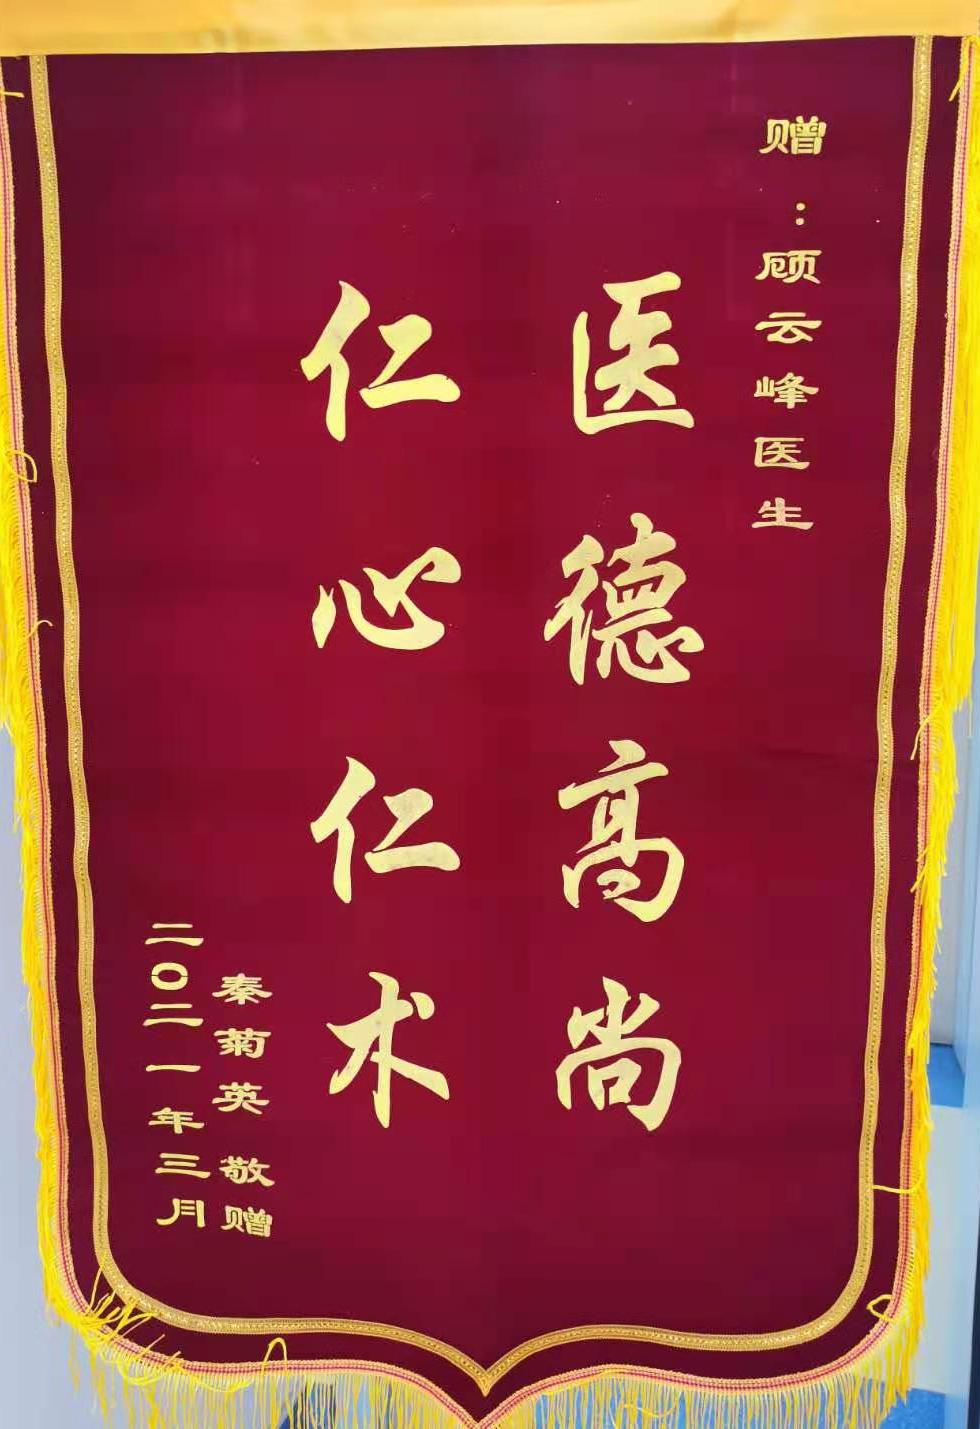 赠：顾云峰医生
医德高尚
仁心仁术
秦菊英 敬赠
二〇二一年三月